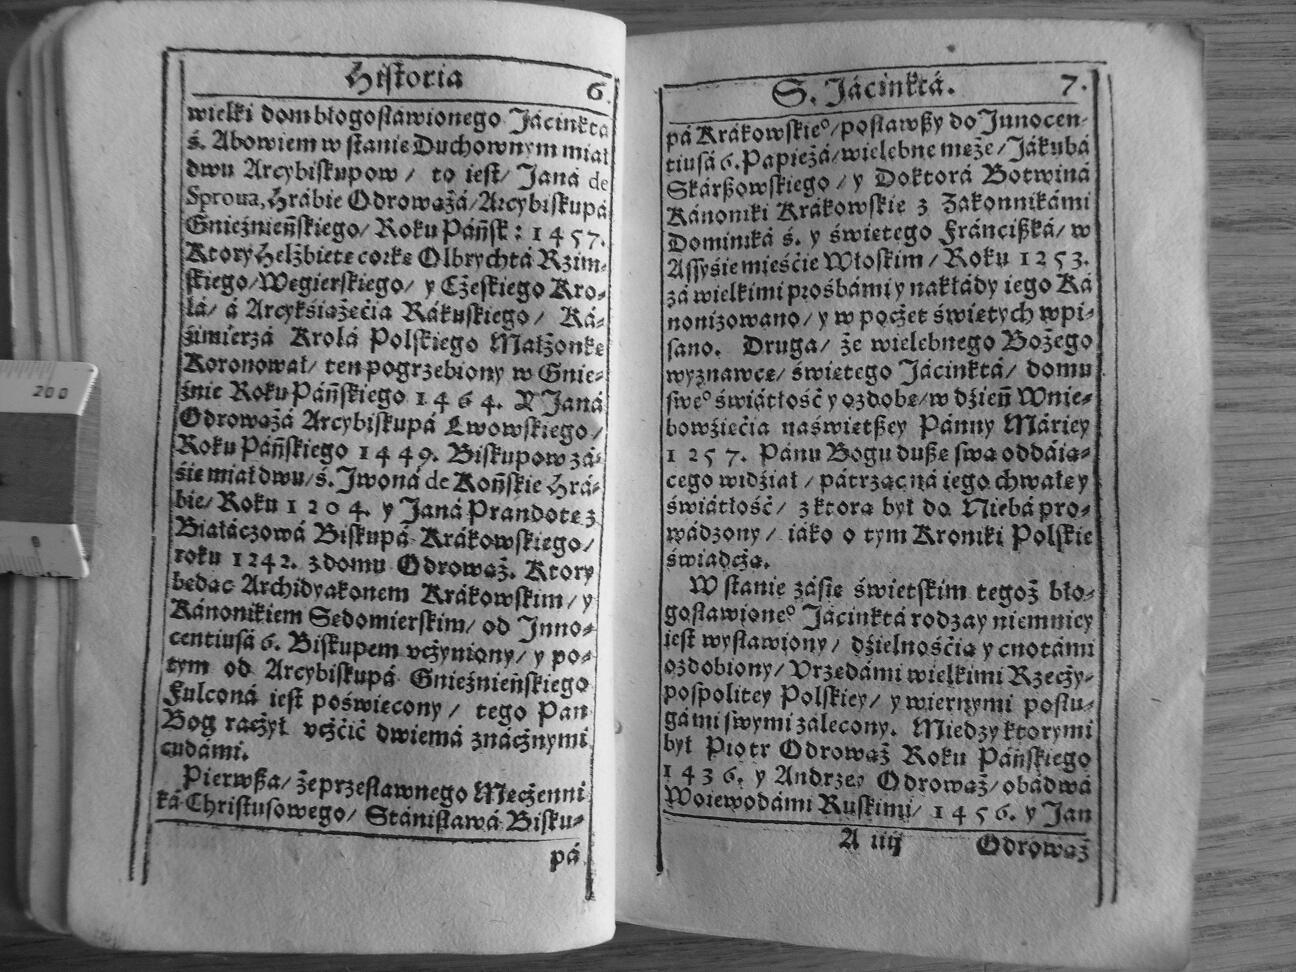 Historia 6.
wielki dom błogosławionego Jácinktá
ś. Abowiem w stanie Duchownym miał
dwu Arcybiskupow / to iest / Janá de
Sproua, Hrábie Odrowążá / Arcybiskupá
Gnieźnieńskiego / Roku Páńsk: 1457.
Ktory Helżbiete corke Olbrychtá Rzim-
skiego / Węgierskiego / y Cżeskiego Kro-
lá / á Arcykśiążęćia Rákuskiego / Ká-
źimierzá Krolá Polskiego Małżonkę
Koronował / ten pogrzebiony w Gnie-
źnie Roku Páńskiego 1464. Y Janá
Odrowążá Arcybiskupá Lwowskiego /
Roku Páńskiego 1449. Biskupow zá-
śie miał dwu / ś. Jwoná de Końskie Hrá-
bie / Roku 1204. y Janá Prandotę z
Białáczowá Biskupá Krákowskiego /
roku 1242. z domu Odrowąż. Ktory
będąc Archidyakonem Krákowskim / y
Kánonikiem Sędomierskim / od Jnno-
centiusá 6. Biskupem vcżyniony / y po-
tym od Arcybiskupá Gnieźnieńskiego
Fulconá iest poświęcony / tego Pan
Bog racżył vcżćić dwiemá znácżnymi
cudámi.
Pierwßa / że przesławnego Męcżenni
ká Christusowego / Stánisławá Bisku-
pá
S. Jácinktá. 7.
pá Krákowskieº / posławßy do Jnnocen-
tiusá 6. Papieżá / wielebne męże / Jákubá
Skárßowskiego / y Doktorá Botwiná
Kánoniki Krákowskie z Zakonnikámi
Dominiká ś. y świętego Fránćißká / w
Assyśie mieśćie Włoskim / Roku 1253.
zá wielkimi prośbámi y nakłády iego Ká
nonizowano / y w pocżet świętych wpi-
sano. Druga / że wielebnego Bożego
wyznawce / świętego Jácinktá / domu
sweº świátłość y ozdobe / w dźień Wnie-
bowźięćia naświętßey Pánny Máriey
1257. Pánu Bogu dußę swą oddáią-
cego widźiał / pátrząc ná iego chwałę y
świátłość / z ktorą był do Niebá pro-
wádzony / iáko o tym Kroniki Polskie
świadcżą.
W stanie záśię świetskim tegoż bło-
gosławioneº Jácinktá rodzay niemniey
iest wysławiony / dźielnośćią y cnotámi
ozdobiony / Vrzędámi wielkimi Rzecży-
pospolitey Polskiey / y wiernymi posłu-
gámi swymi zálecony. Między ktorymi
był Piotr Odrowąż Roku Páńskiego
1436. y Andrzey Odrowąż / obádwá
Woiewodámi Ruskimi / 1456. y Jan
A iiij Odrowąż